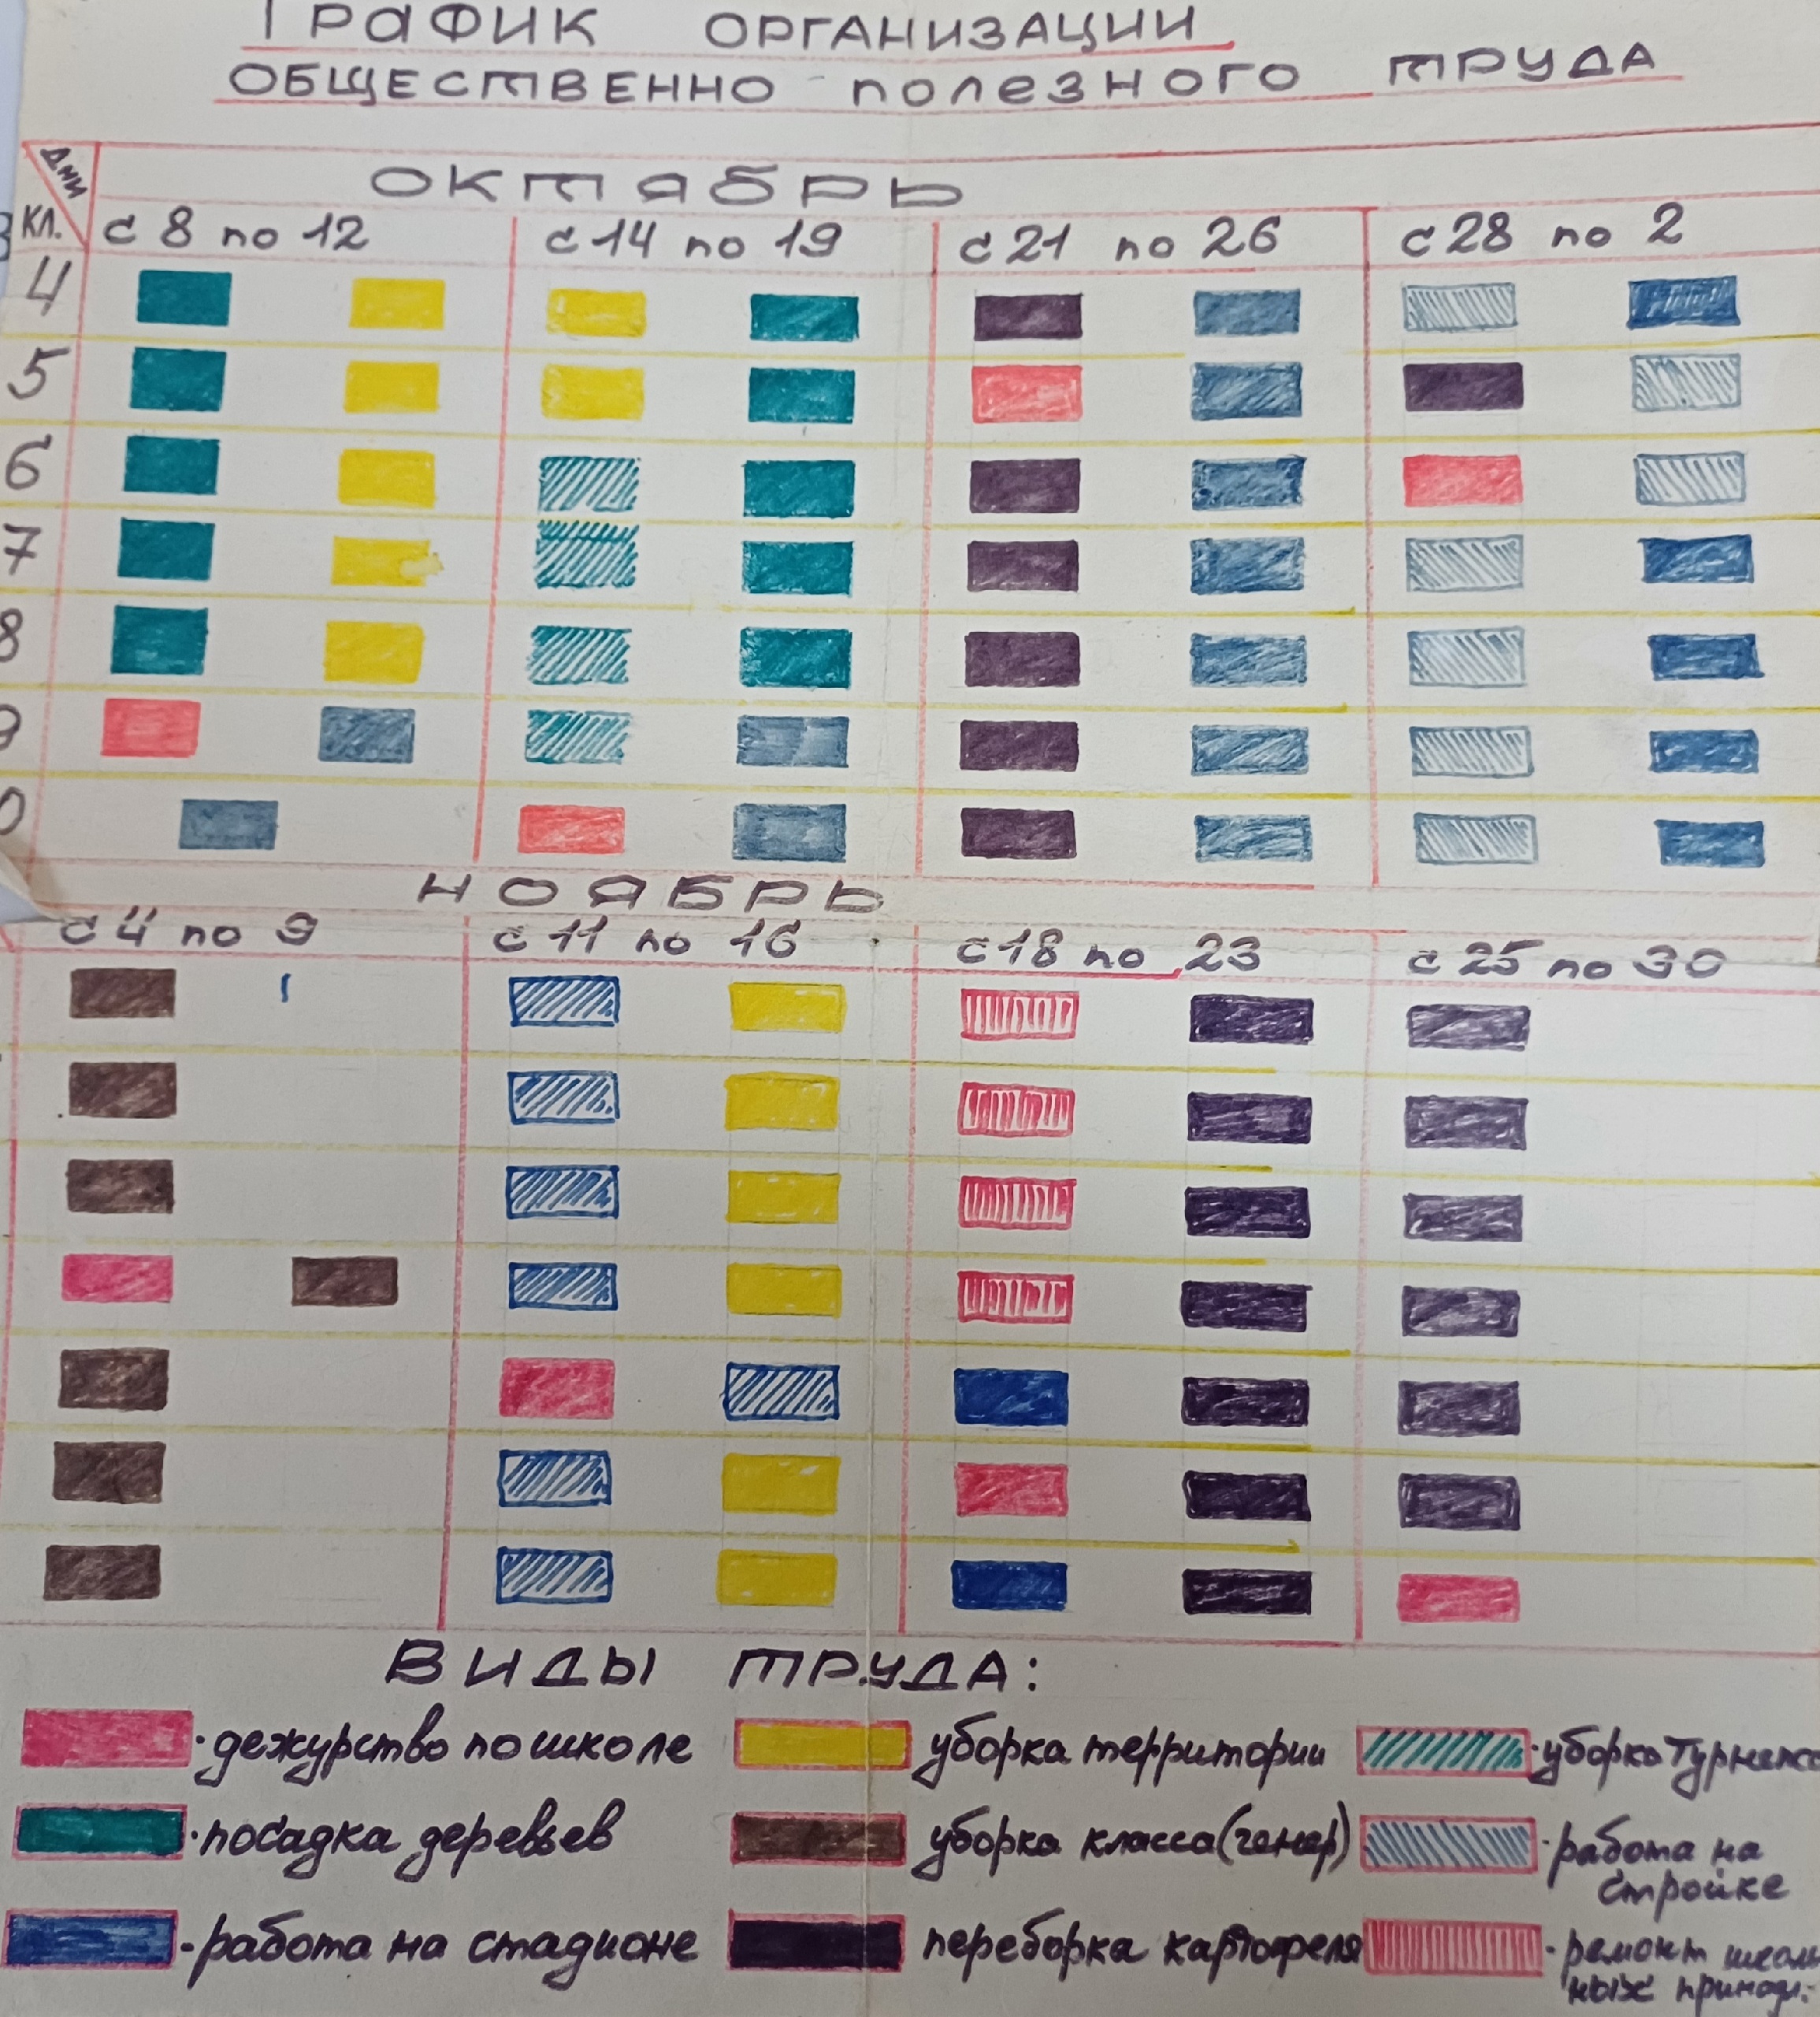 ГРАФИК ОРГАНИЗАЦИИ
ОБЩЕСТВЕННО полезного ТРУДА
ДНИ
КЛ.
ОКТЯБРЬ
с 8 по 12 с 14 по 19 с 21 по 26 с 28 по 2
4
5
6
7
8
9
0
НОЯБРЬ
с 4 по 9 с 11 по 16 с 18 по 23 с 25 по 30
ВИДЫ ТРУДА:
дежурство по школе уборка территории уборка
посадка деревьев уборка класса (генер) работа на
стройке
работа на стадионе переборка картофеля ремонт школь
ных